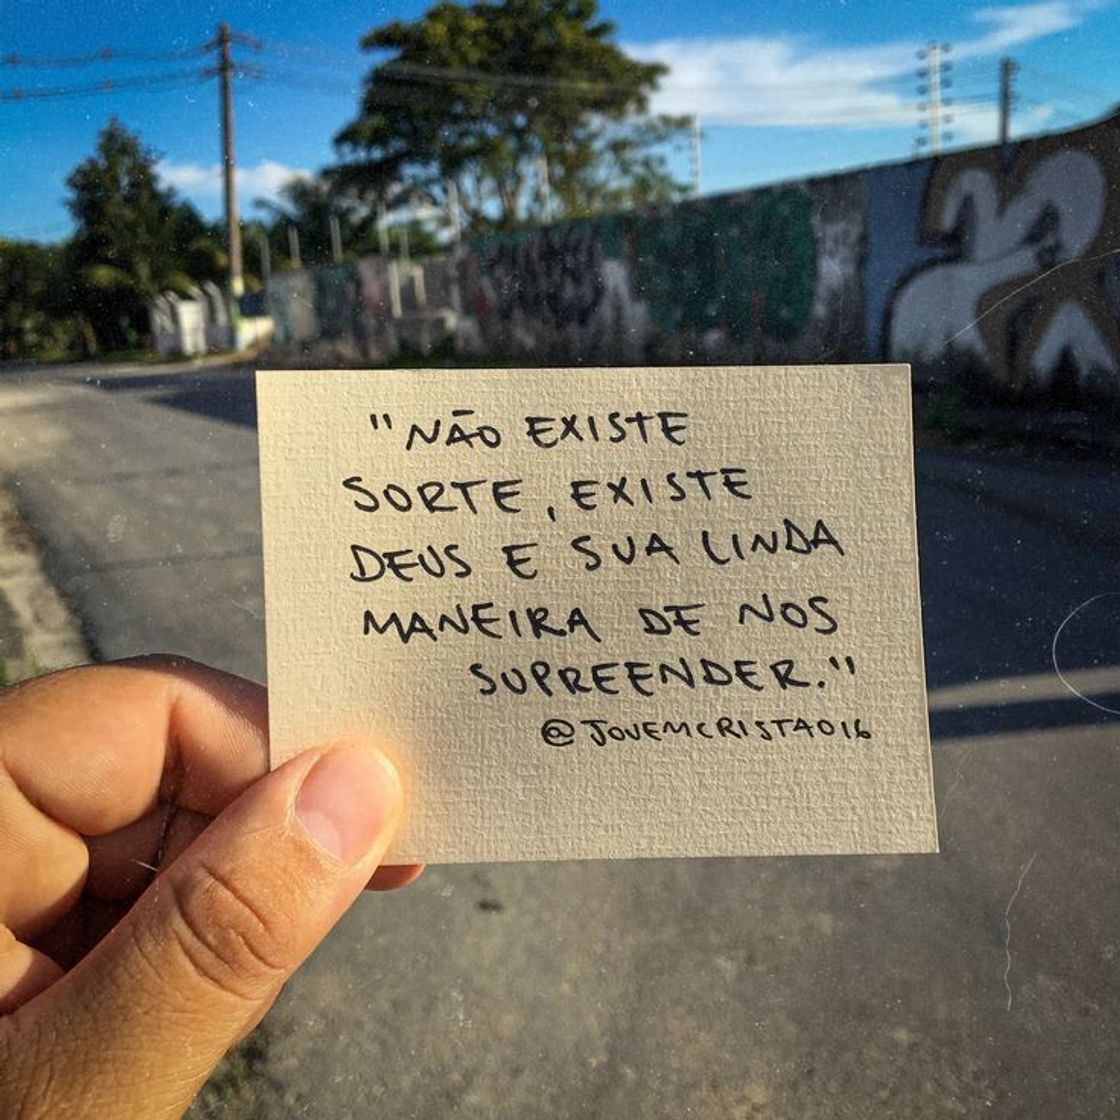 "NÃO EXISTE
SORTE, EXISTE
DEUS E SUA LINDA
MANEIRA DE NOS
SUPREENDER."
@JOVEMCRISTAO16